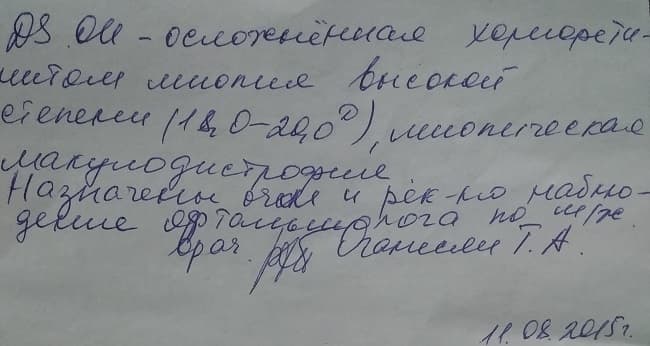 DS. OU – осложнённая хориорети-
нитом миопия высокой
степени (18,0–20,0 D), миопическая
макулодистрофия
Назначены очки и рек-но наблю-
дение офтальмолога по м/ж.
Врач. Оганисян Т. А.
11.08.2015г.